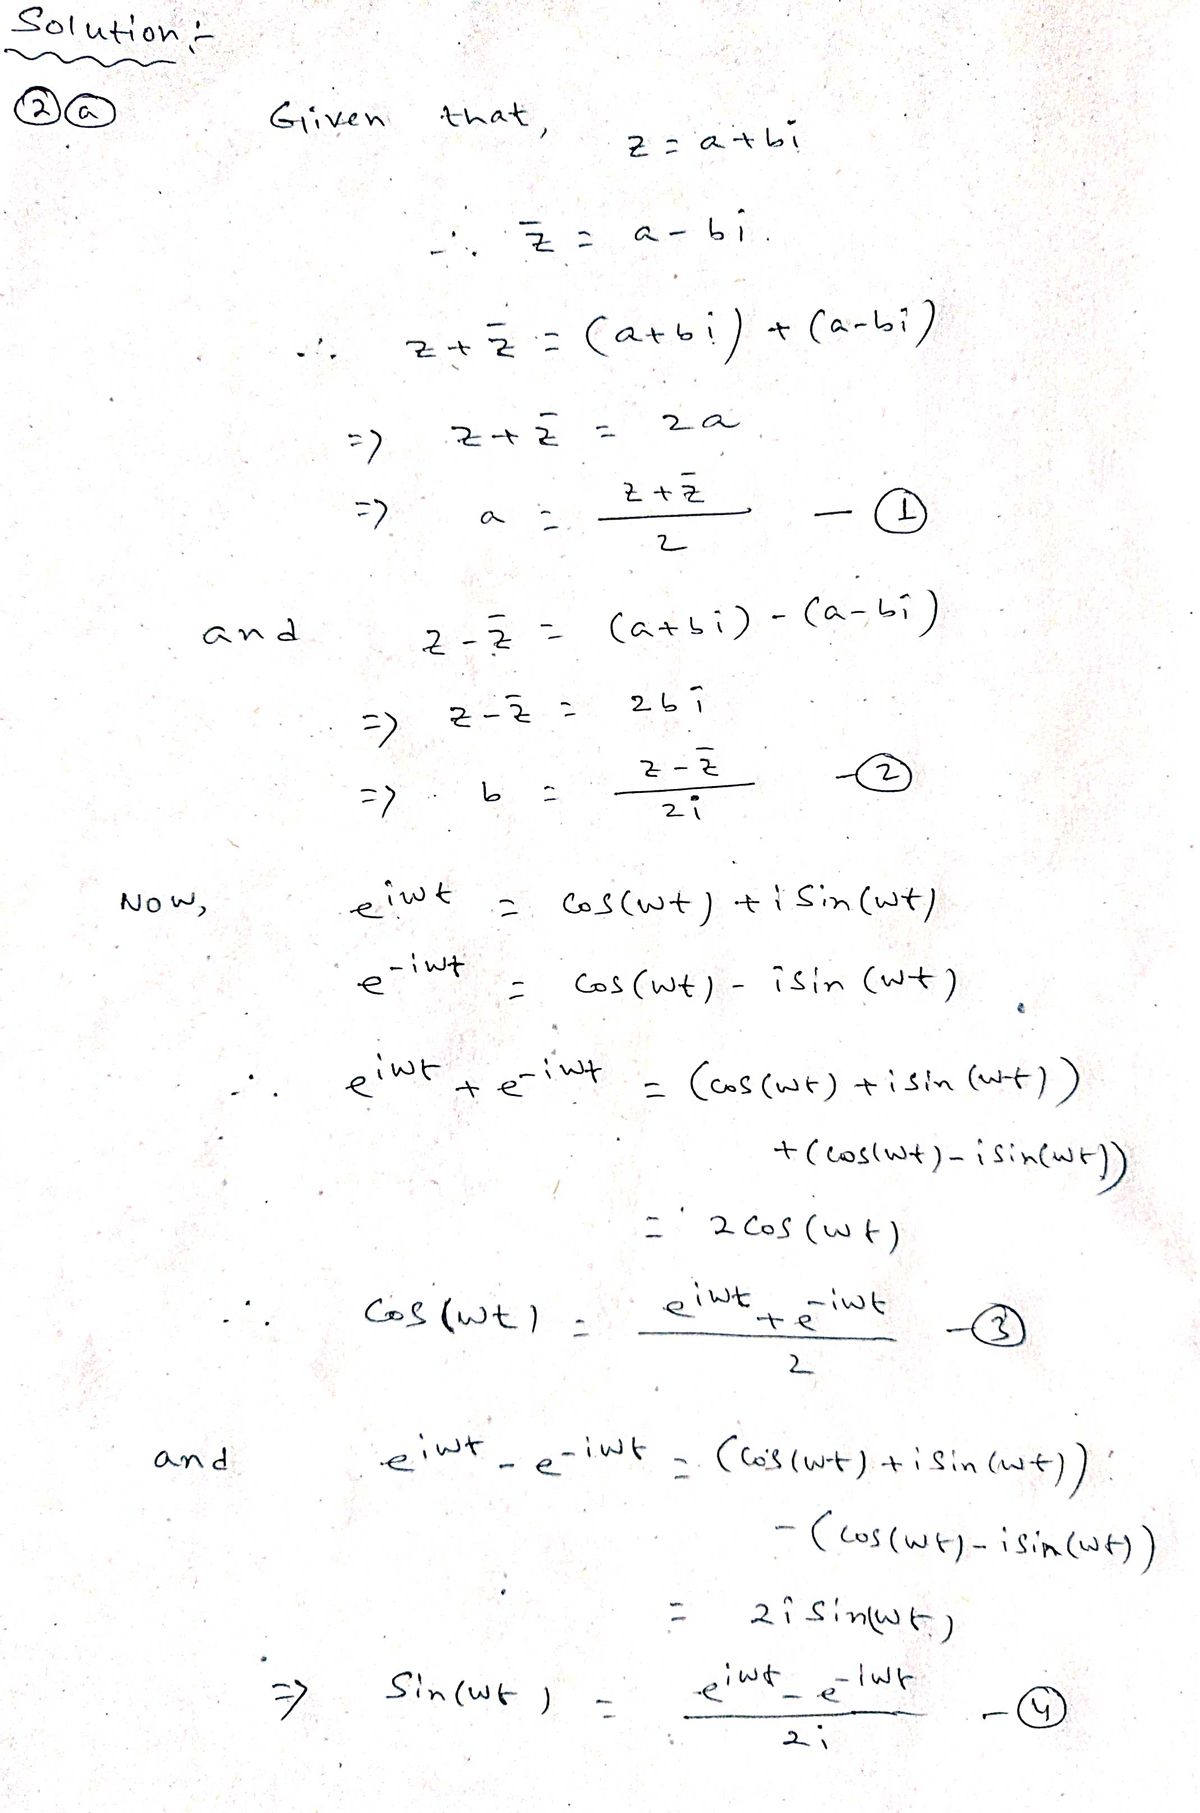 Solution :-
2 a Given that, z = a + bi
∴ z̄ = a - bi.
∴ z + z̄ = (a+bi) + (a-bi)
=> z + z̄ = 2a
=> a = (z + z̄)/2 — 1
and z - z̄ = (a+bi) - (a-bi)
=> z - z̄ = 2bi
=> b = (z - z̄)/2i — 2
Now, e^{iwt} = cos(wt) + i sin(wt)
e^{-iwt} = cos(wt) - i sin(wt)
∴ e^{iwt} + e^{-iwt} = (cos(wt) + i sin(wt))
+ (cos(wt) - i sin(wt))
= 2 cos(wt)
∴ cos(wt) = (e^{iwt} + e^{-iwt})/2 — 3
and e^{iwt} - e^{-iwt} = (cos(wt) + i sin(wt))
- (cos(wt) - i sin(wt))
= 2i sin(wt)
=> Sin(wt) = (e^{iwt} - e^{-iwt})/2i — 4